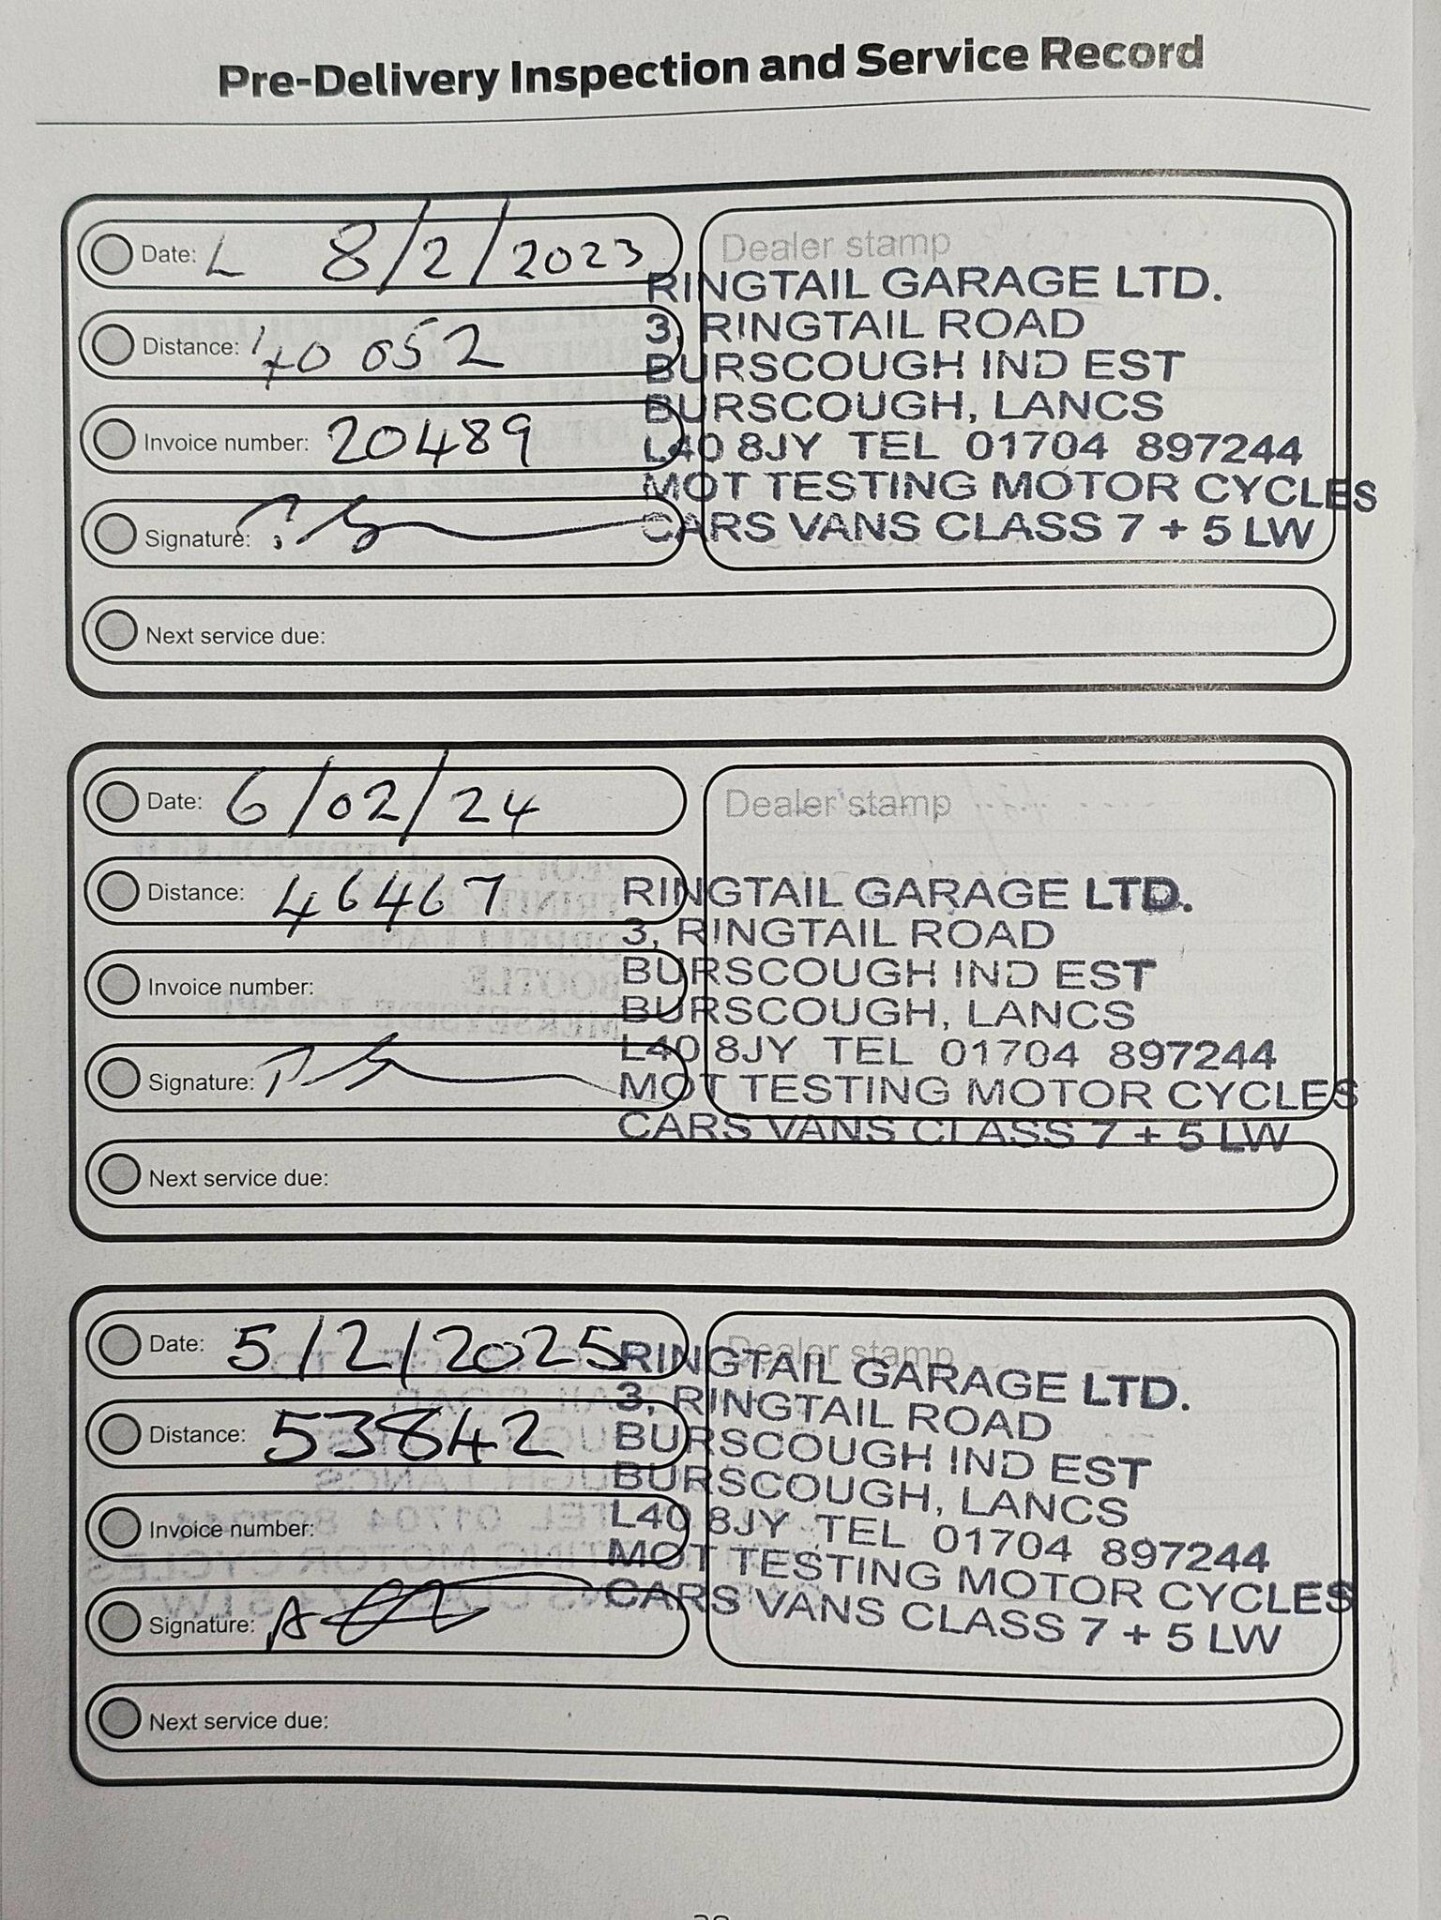 Pre-Delivery Inspection and Service Record
Date: L 8/2/2023
Distance: 40 052
Invoice number: 20489
Signature:
Next service due:
Dealer stamp
RINGTAIL GARAGE LTD.
3, RINGTAIL ROAD
BURSCOUGH IND EST
BURSCOUGH, LANCS
L40 8JY TEL 01704 897244
MOT TESTING MOTOR CYCLES
CARS VANS CLASS 7 + 5 LW
Date: 6/02/24
Distance: 46467
Invoice number:
Signature:
Next service due:
Dealer stamp
RINGTAIL GARAGE LTD.
3, RINGTAIL ROAD
BURSCOUGH IND EST
BURSCOUGH, LANCS
L40 8JY TEL 01704 897244
MOT TESTING MOTOR CYCLES
CARS VANS CLASS 7 + 5 LW
Date: 5/2/2025
Distance: 53842
Invoice number:
Signature:
Next service due:
Dealer stamp
RINGTAIL GARAGE LTD.
3, RINGTAIL ROAD
BURSCOUGH IND EST
BURSCOUGH, LANCS
L40 8JY TEL 01704 897244
MOT TESTING MOTOR CYCLES
CARS VANS CLASS 7 + 5 LW